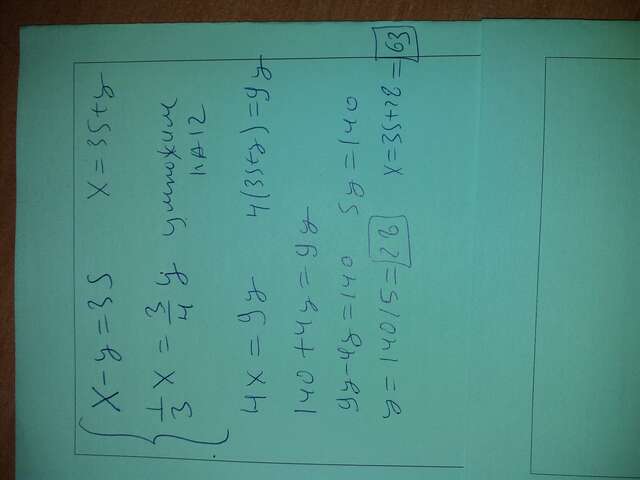 x-y=35 x=35+y
1/3 x = 3/4 y умножим
на 12
4x = 9y 4(35+y)=9y
140+4y=9y
9y-4y=140 5y=140
y=140/5=28 x=35+28=63